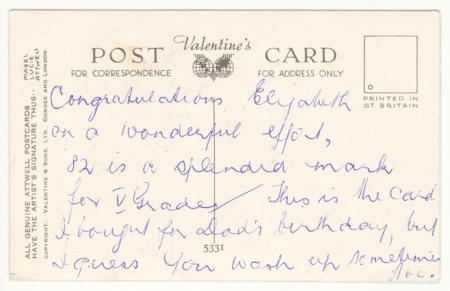 POST Valentine's CARD
FOR CORRESPONDENCE FOR ADDRESS ONLY
PRINTED IN
GT. BRITAIN
ALL GENUINE ATTWELL POSTCARDS
HAVE THE ARTIST'S SIGNATURE THUS:-
MABEL
LUCIE
ATTWELL
COPYRIGHT. VALENTINE & SONS, LTD. DUNDEE AND LONDON.
Congratulations Elizabeth
on a wonderful effort,
82 is a splendid mark
for V Grade This is the card
I bought for dad's birthday, but
I guess you wash up sometimes
5331